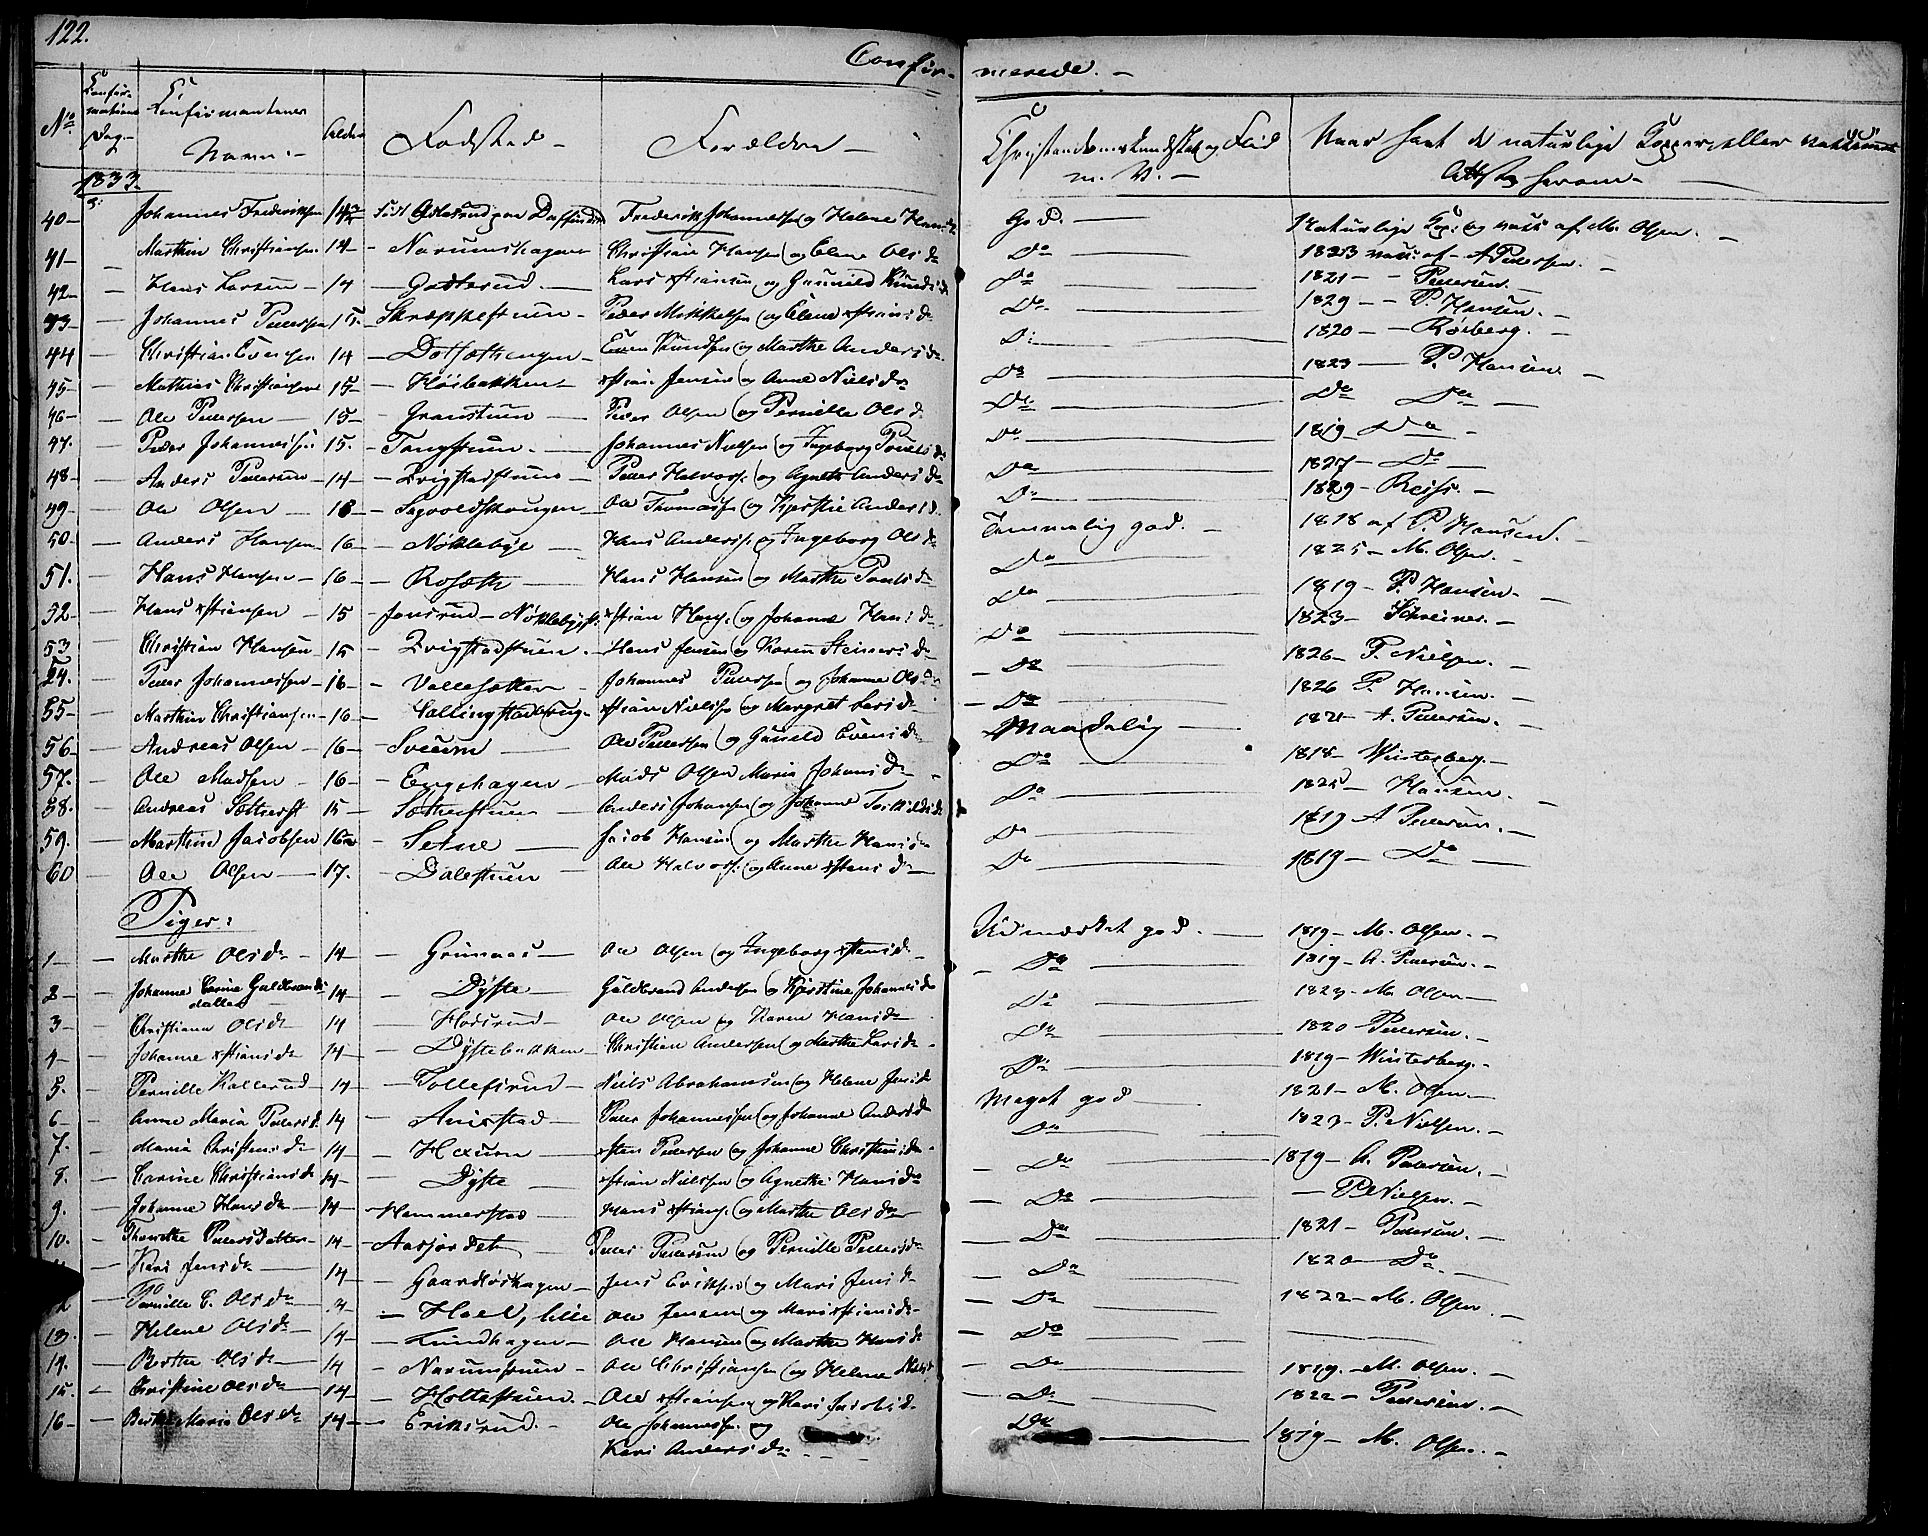 122.
Confir-merede.
No | Confirmations Dag | Confirmanternes Navn | Alder | Fødsted | Forældre | Christendomskundskab og Flid m. V. | Naar havt de naturlige Kopper eller vakcineret Attest herom
1833.
40 Johannes Frederiksen 14 Frederik Johannessen og Helene God. Naturlige Kop: og vakc af M. Olsen.
41 Marthin Christiansen 14 Narumshagen Christian Hansen og Elene Olsd Do 1823 vacc: af A Pedersen.
42 Hans Larsen 14 Gotterud Lars xstiansen og Gunnild Knudsd Do 1821 Pedersen.
43 Johannes Pedersen 15 Skræppestuen Peder Mikkelsen og Elene xstiansd Do 1829 P. Hansen.
44 Christian Evensen 14 Even Knudsen og Marthe Andersd Do 1820 Røsberg.
45 Mathias Christiansen 15 Høibakken xstian Jensen og Anne Nielsd Do 1823 P. Hansen.
46 Ole Pedersen 15 Granstuen Peder Olsen og Pernille Olsd Do Do Do
47. Peder Johannessen 15. Tangstuen Johannes Nielsen og Ingeborg Poulsd Do 1819 Do
48 Anders Pedersen 14 Evigstadstuen Peder Halvors. og Agnethe Andersd Do 1827 Do
49 Ole Olsen 18 Sagvoldskougen Ole Thomass og Kjerstie Andersd Do 1829 Reiss.
50 Anders Hansen 16 Nøklebye Hans Anderss. og Ingeborg Olsd Temmelig god. 1818 af P. Hansen.
51. Hans Hansen 16 Rosæth Hans Hansen og Marthe Poulsd Do 1825 M. Olsen.
52 Hans xstiansen 15 Jonsrud Nøklebyst. xstian Hans. og Johanne Hansd Do 1819 P. Hansen.
53 Christian Hansen 15 Evigstadstuen. Hans Jensen og Karen Steinersd Do 1823 Schreiner.
54. Peder Johannessen 16 Vollesætter Johannes Pedersen og Johanne Olsd Do 1826 F. Nielsen.
55 Marthin Christiansen 16 xstian Nielsen og Margret Larsd Do 1826 P. Hansen.
56 Andreas Olsen 16 Sveum Ole Pedersen og Gunild Evensd Maadelig 1821 A. Pedersen.
57. Ole Madsen 16 Engehagen Mads Olsen Maria Johansd Do 1818 Winterberg.
58. Andreas 15 Sætherstuen Anders Johansen og Johanne Do 1825 Hansen.
59. Marthin Jacobsen 16 Setne Jacob Hansen og Marthe Hansd Do 1819 A Pedersen.
60 Ole Olsen 17. Dalestuen Ole Halvors. og Anne xstiansd Do 1819 Do
Piger:
1 Marthe Olsd 14 Grimaas Ole Olsen og Ingeborg xstensd Udmærket god. 1819 M. Olsen.
2 Johanne Carine Guldbrandsdatter 14 Dyste Guldbrand Andersen og Kjerstine Johannesd Do 1819 A. Pedersen.
3 Christiana Olsd 14 Ole Olsen og Karen Hansd Do 1823 M. Olsen
4 Johanne xstiansd 14 Dystebakken Christian Andersen og Marthe Larsd Do 1820 Pedersen.
5. Pernille Kallerud 14 Tollefsrud Niels Abrahamsen og Helene Jensd Do 1819 Winterberg.
6 Anne Maria Pedersd 14 Anistad Peder Johannessen og Johanne Andersd Meget god 1821 M. Olsen.
7. Maria Christensd 14 Hexum xsten Pedersen og Johanne Christensd Do 1823 P. Nielsen.
8. Carine Christiansd 14 Dyste xstian Nielsen og Agnethe Hansd Do 1819 A. Pedersen.
9. Johanne Hansd 14 Hammerstad Hans xstians. og Marthe Olsd Do P Nielsen.
10. Thorethe Pedersdatter 14 Aasjordet Peder Pedersen og Pernille Pedersd Do 1821 Pedersen.
Kari Jensd 14 Gaardløshagen Jens Eriksen og Mari Jensd Do 1820 Do
Pernille C. Olsd Hoel, lille Ole Jensen og Mari xstiansd Do 1822 M. Olsen
13. Helene Olsd 14 Lundhagen Ole Hansen og Marthe Hansd Do
14. Berthe Olsd 14 Narumstuen Ole Christiansen og Helene Do 1819. M. Olsen.
15. Christine Olsd 14 Holtestuen Ole xstiansen og Kari Jacobsd Do 1822 Pedersen.
16 Berthe Maria Olsd 14 Eriksrud Ole Johanness. og Do 1819 M. Olsen.
Kari Andersd